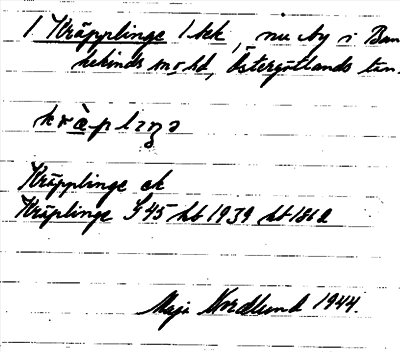 1 Kräpplinge 1 kk, nu by i Ban
kekinds mo hd, Östergötlands län.
kræ̀pliŋə
Kräpplinge ek
Kräplinge G45 hb 1939 hb 1862
Maja Nordlund 1944.